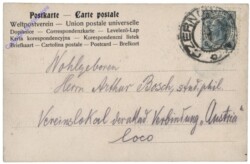 Postkarte — Carte postale
Weltpostverein — Union postale universelle
Dopisnice — Correspondenzkarte — Levelező-Lap
Karta korespondencyjna — Korespondenční lístek
Briefkaart — Cartolina postale — Postcard — Brefkort
CZERN
Wohlgeboren
Herrn Arthur Bosch, stud phil
Vereinslokal der akad Verbindung „Austria"
Loco